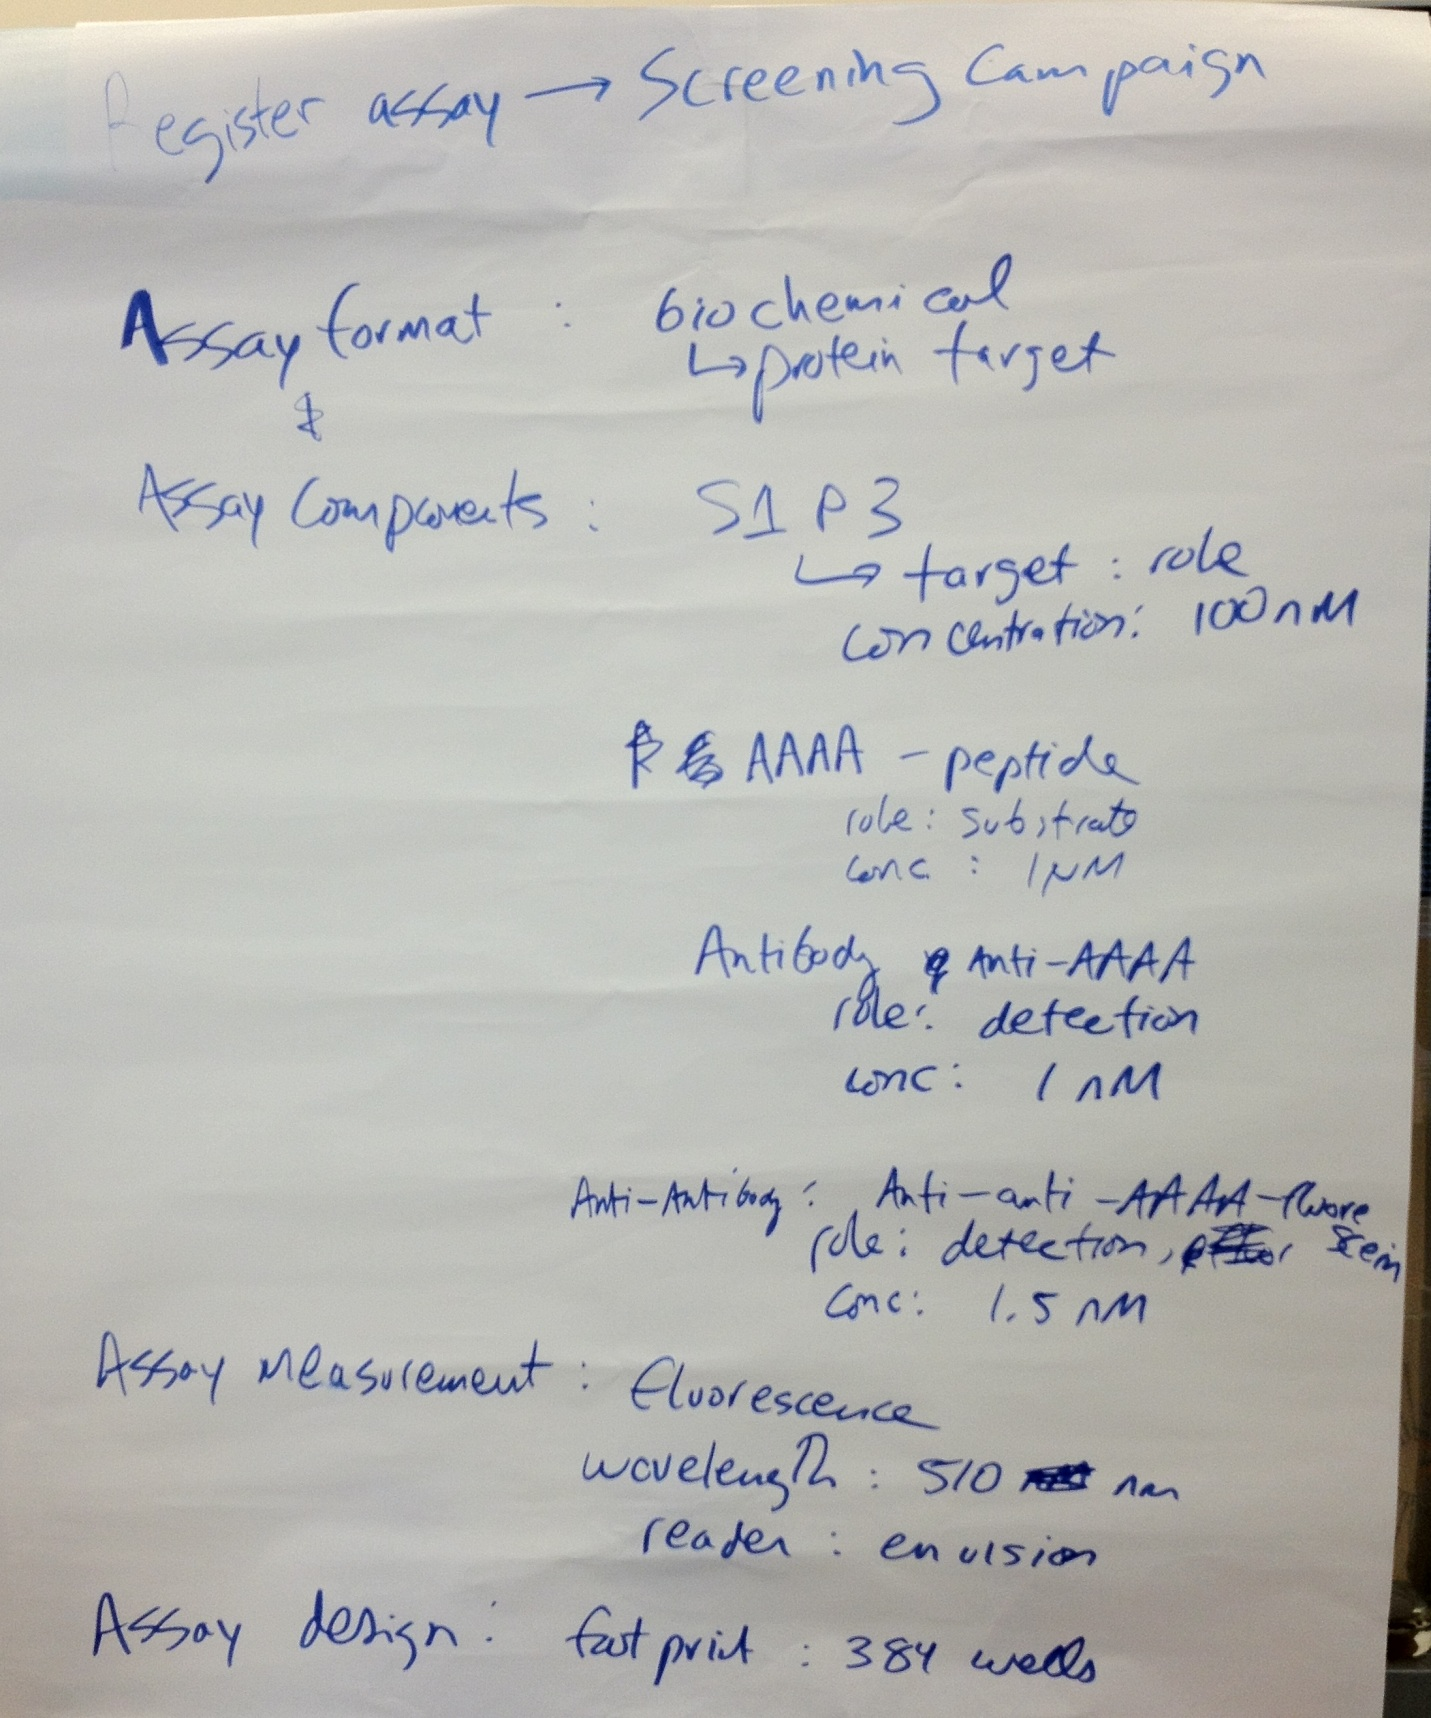 Register assay → Screening Campaign
Assay format : biochemical
↳ protein target
Assay Components : S1P3
↳ target : role
concentration: 100nM
AAAA - peptide
role: substrate
conc : 1µM
Antibody Anti-AAAA
role: detection
conc: 1 nM
Anti-Antibody: Anti-anti-AAAA-fluore
role: detection, scein
conc: 1.5 nM
Assay Measurement : Fluorescence
wavelength : 510 nm
reader : envision
Assay design : footprint : 384 wells